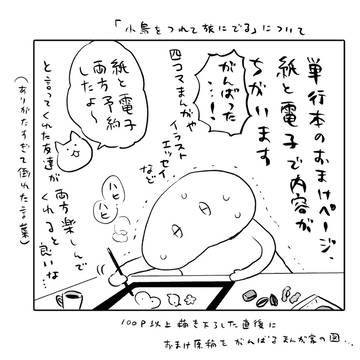 「小鳥をつれて旅にでる」について
単行本のおまけページ、
紙と電子で内容が
ちがいます
がんばった
…!
四コマまんがや
イラスト
エッセイ
など
紙と電子
両方予約
したよ〜
と言ってくれた友達が
(ありがたすぎて倒れた言葉)
両方楽しんで
くれると
良いな…
ハヒ
ハヒ
100P以上描き下ろした直後に
おまけ原稿で がんばる まんが家の図…